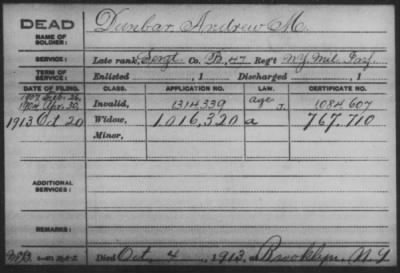 DEAD
NAME OF SOLDIER: Dunbar, Andrew M.
SERVICE: Late rank, Sergt Co. B, 47 Reg't N.Y. Mil. Inf.
TERM OF SERVICE: Enlisted , 1 Discharged , 1
DATE OF FILING. CLASS. APPLICATION NO. LAW. CERTIFICATE NO.
1907 Feb. 26,
1904 Apr. 30, Invalid, 1314339 age J. 1084607
1913 Oct 20 Widow, 1,016,320 a 767.710
Minor,
ADDITIONAL SERVICES:
REMARKS:
Died Oct. 4, 1913, at Brooklyn, N.Y.